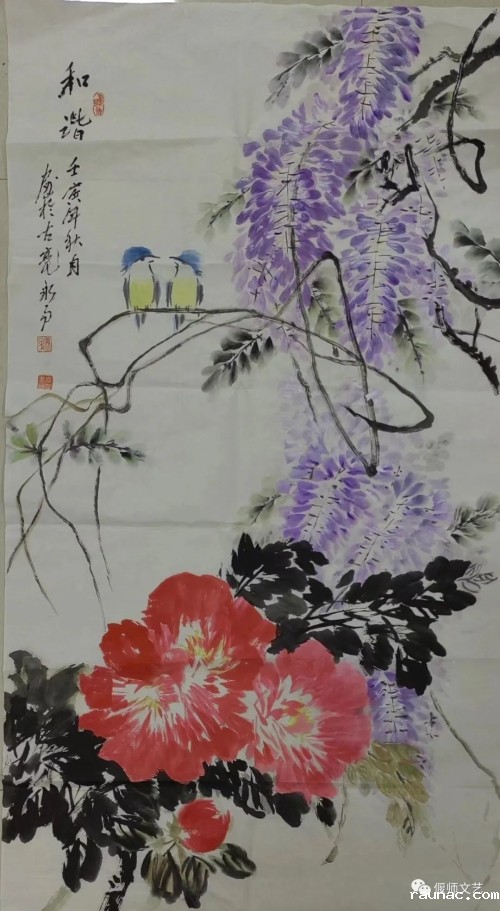 和谐
壬寅年秋月
于古亳永
偃师文艺
raunac.com